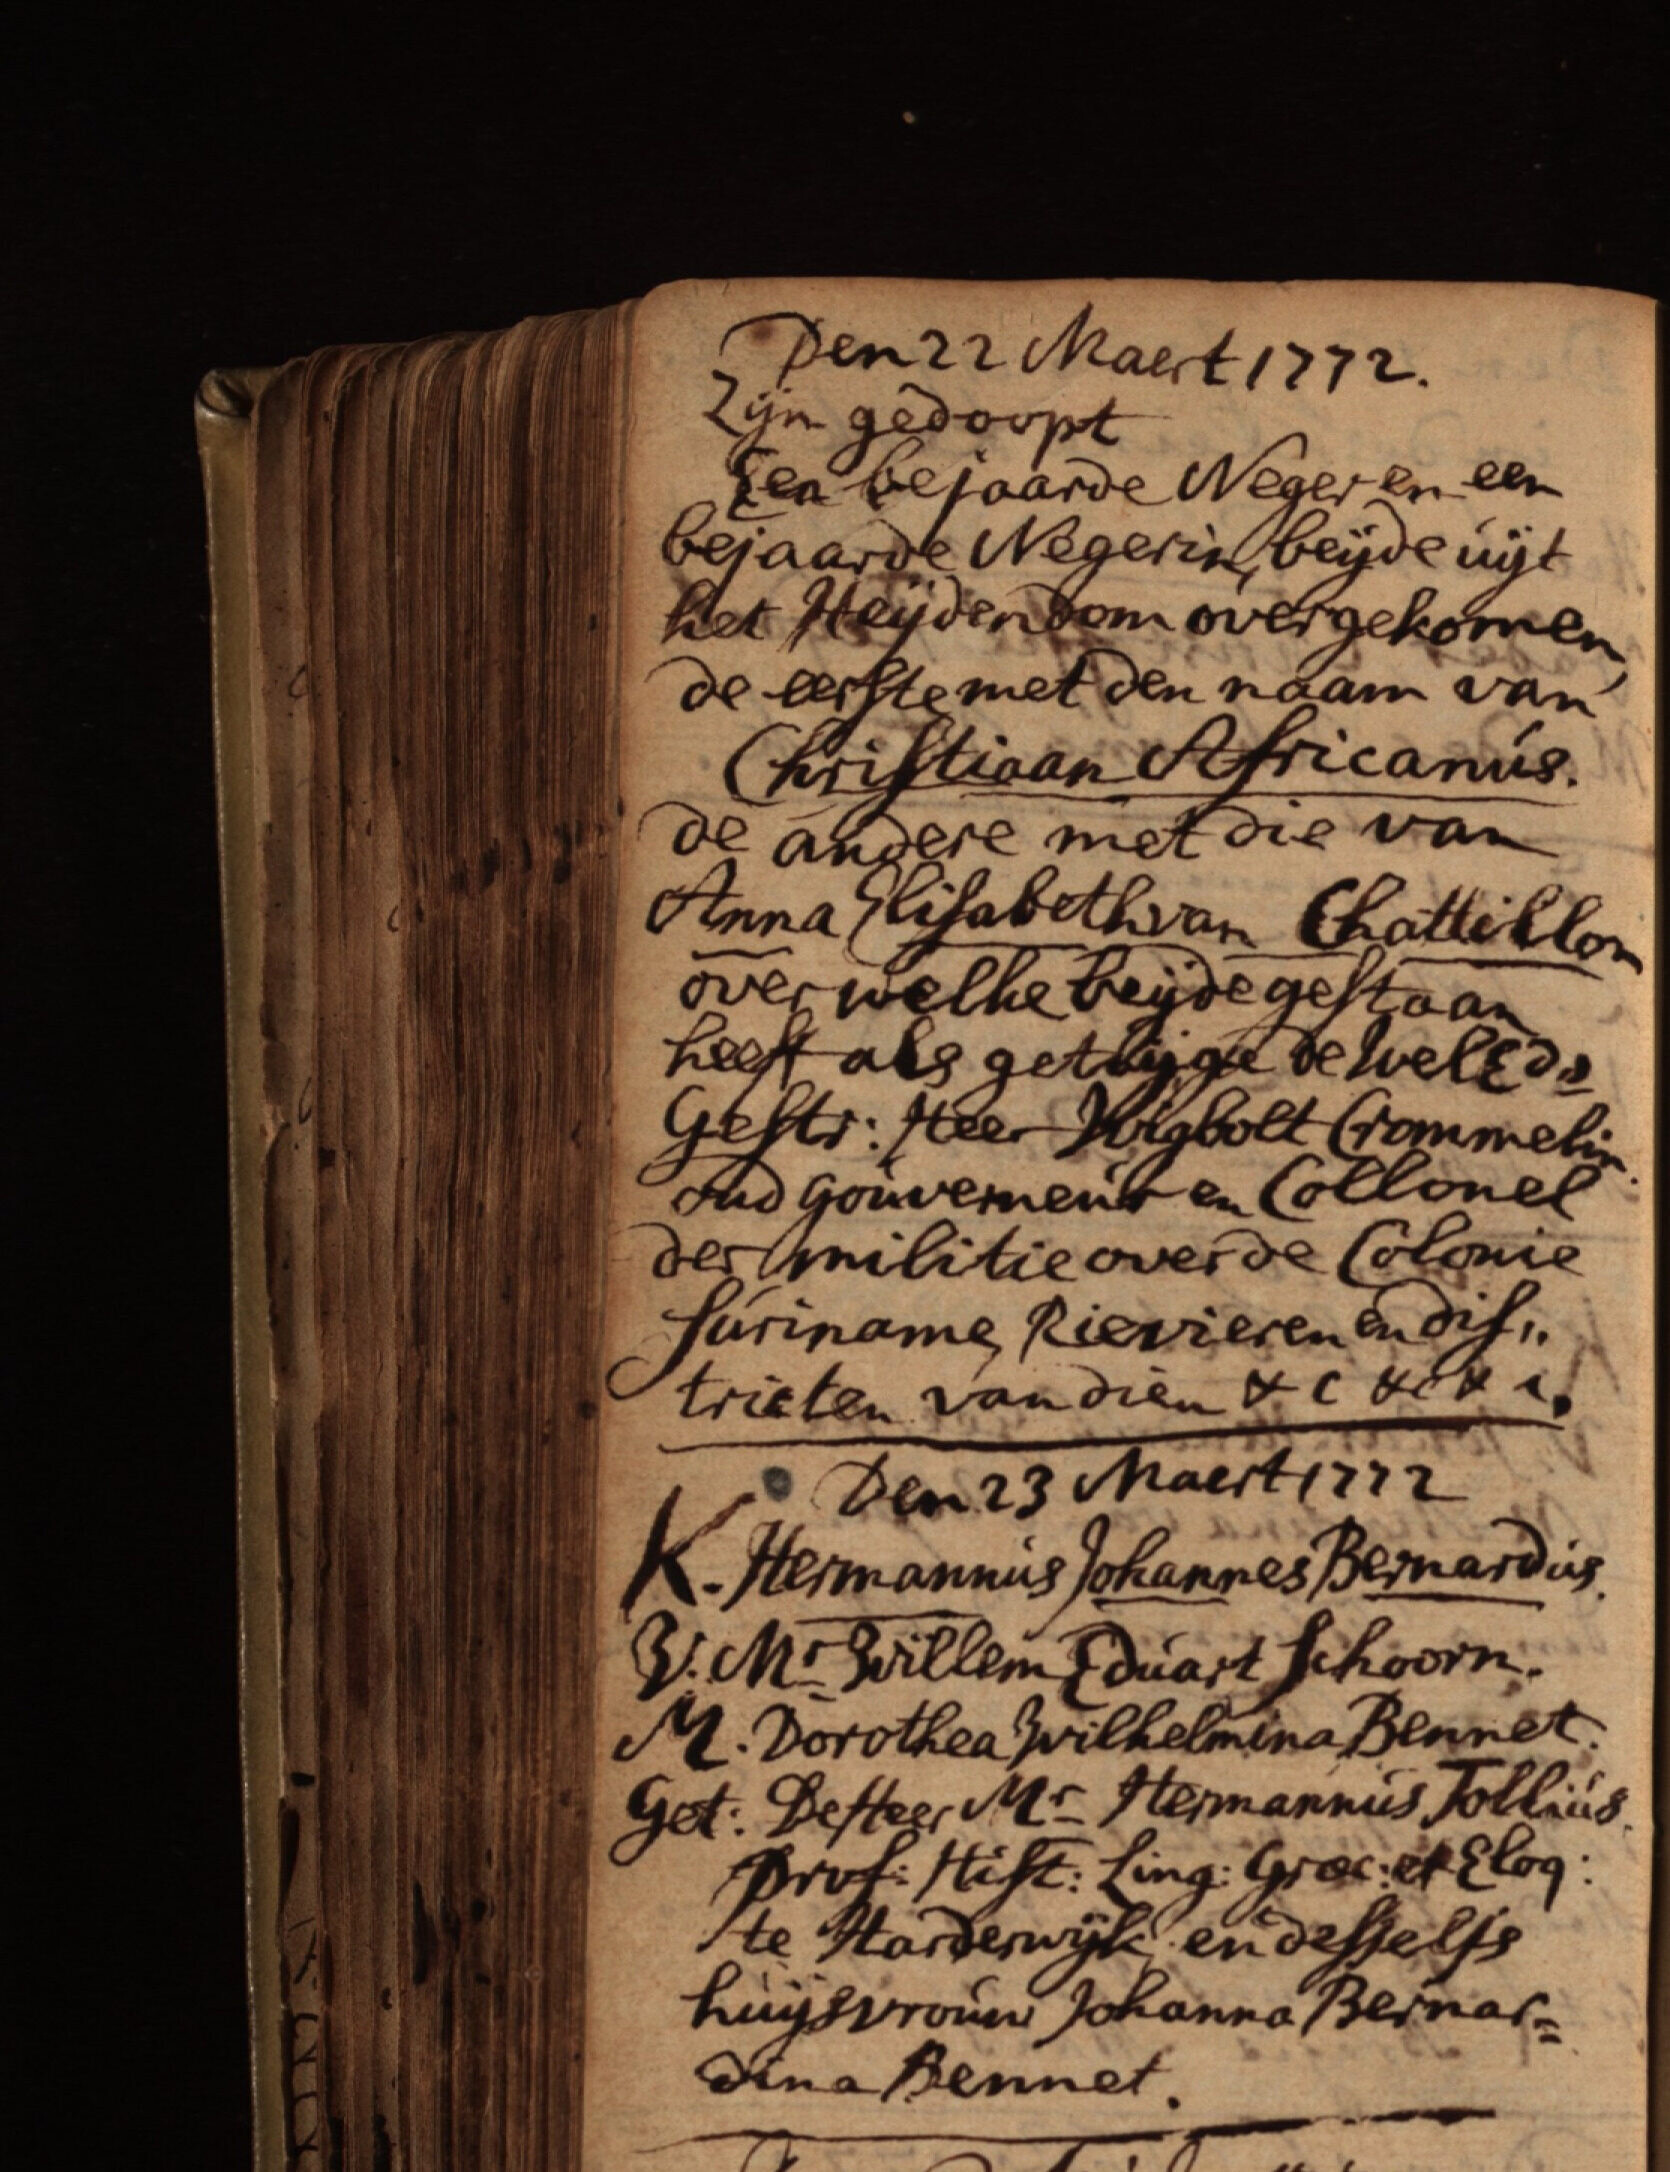 Den 22 Maert 1772.
Zijn gedoopt
Een bejaarde Neger en een
bejaarde Negerin, beijde uijt
het Heijdendom overgekomen,
de eerste met den naam van
Christiaan Africanus.
de andere met die van
Anna Elisabeth van Chattillon
over welke beijde gestaan
heeft als getuijge de WelEd=
Gestr: Heer Wigbolt Crommelin
oud Gouverneur en Collonel
der militie over de Colonie
Suriname, Rievieren en dis„
tricten van dien &c &c &c.
Den 23 Maert 1772
K. Hermannus Johannes Bernardus.
V. Mr Willem Eduart Schoorn.
M. Dorothea Wilhelmina Bennet.
Get: De Heer Mr Hermannus Tollius.
Prof: Hist: Ling: Græc: et Eloq:
te Harderwijk en desselfs
huijsvrouw Johanna Bernar=
dina Bennet.